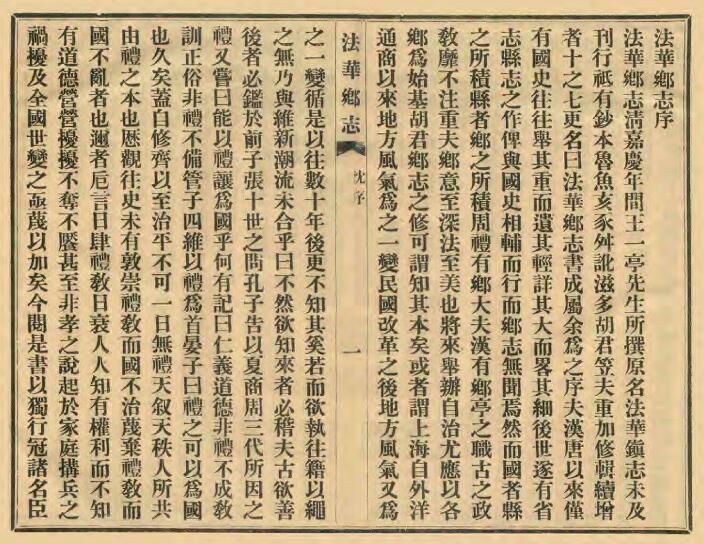 法華鄉志序
法華鄉志淸嘉慶年間王一亭先生所撰原名法華鎭志未及
刊行祗有鈔本魯魚亥豕舛訛滋多胡君笠夫重加修輯續增
者十之七更名曰法華鄉志書成屬余爲之序夫漢唐以來僅
有國史往往舉其重而遺其輕詳其大而畧其細後世遂有省
志縣志之作俾與國史相輔而行而鄉志無聞焉然而國者縣
之所積縣者鄉之所積周禮有鄉大夫漢有鄉亭之職古之政
敎靡不注重夫鄉意至深法至美也將來舉辦自治尤應以各
鄉爲始基胡君鄉志之修可謂知其本矣或者謂上海自外洋
通商以來地方風氣爲之一變民國改革之後地方風氣又爲
法華鄉志
沈序
一
之一變循是以往數十年後更不知其奚若而欲執往籍以繩
之無乃與維新潮流未合乎曰不然欲知來者必稽夫古欲善
後者必鑑於前子張十世之問孔子告以夏商周三代所因之
禮又嘗曰能以禮讓爲國乎何有記曰仁義道德非禮不成敎
訓正俗非禮不備管子四維以禮爲首晏子曰禮之可以爲國
也久矣蓋自修齊以至治平不可一日無禮天叙天秩人所共
由禮之本也歷觀往史未有敦崇禮敎而國不治蔑棄禮敎而
國不亂者也邇者巵言日肆禮敎日衰人人知有權利而不知
有道德營營擾擾不奪不饜甚至非孝之說起於家庭搆兵之
禍擾及全國世變之亟蔑以加矣今閱是書以獨行冠諸名臣